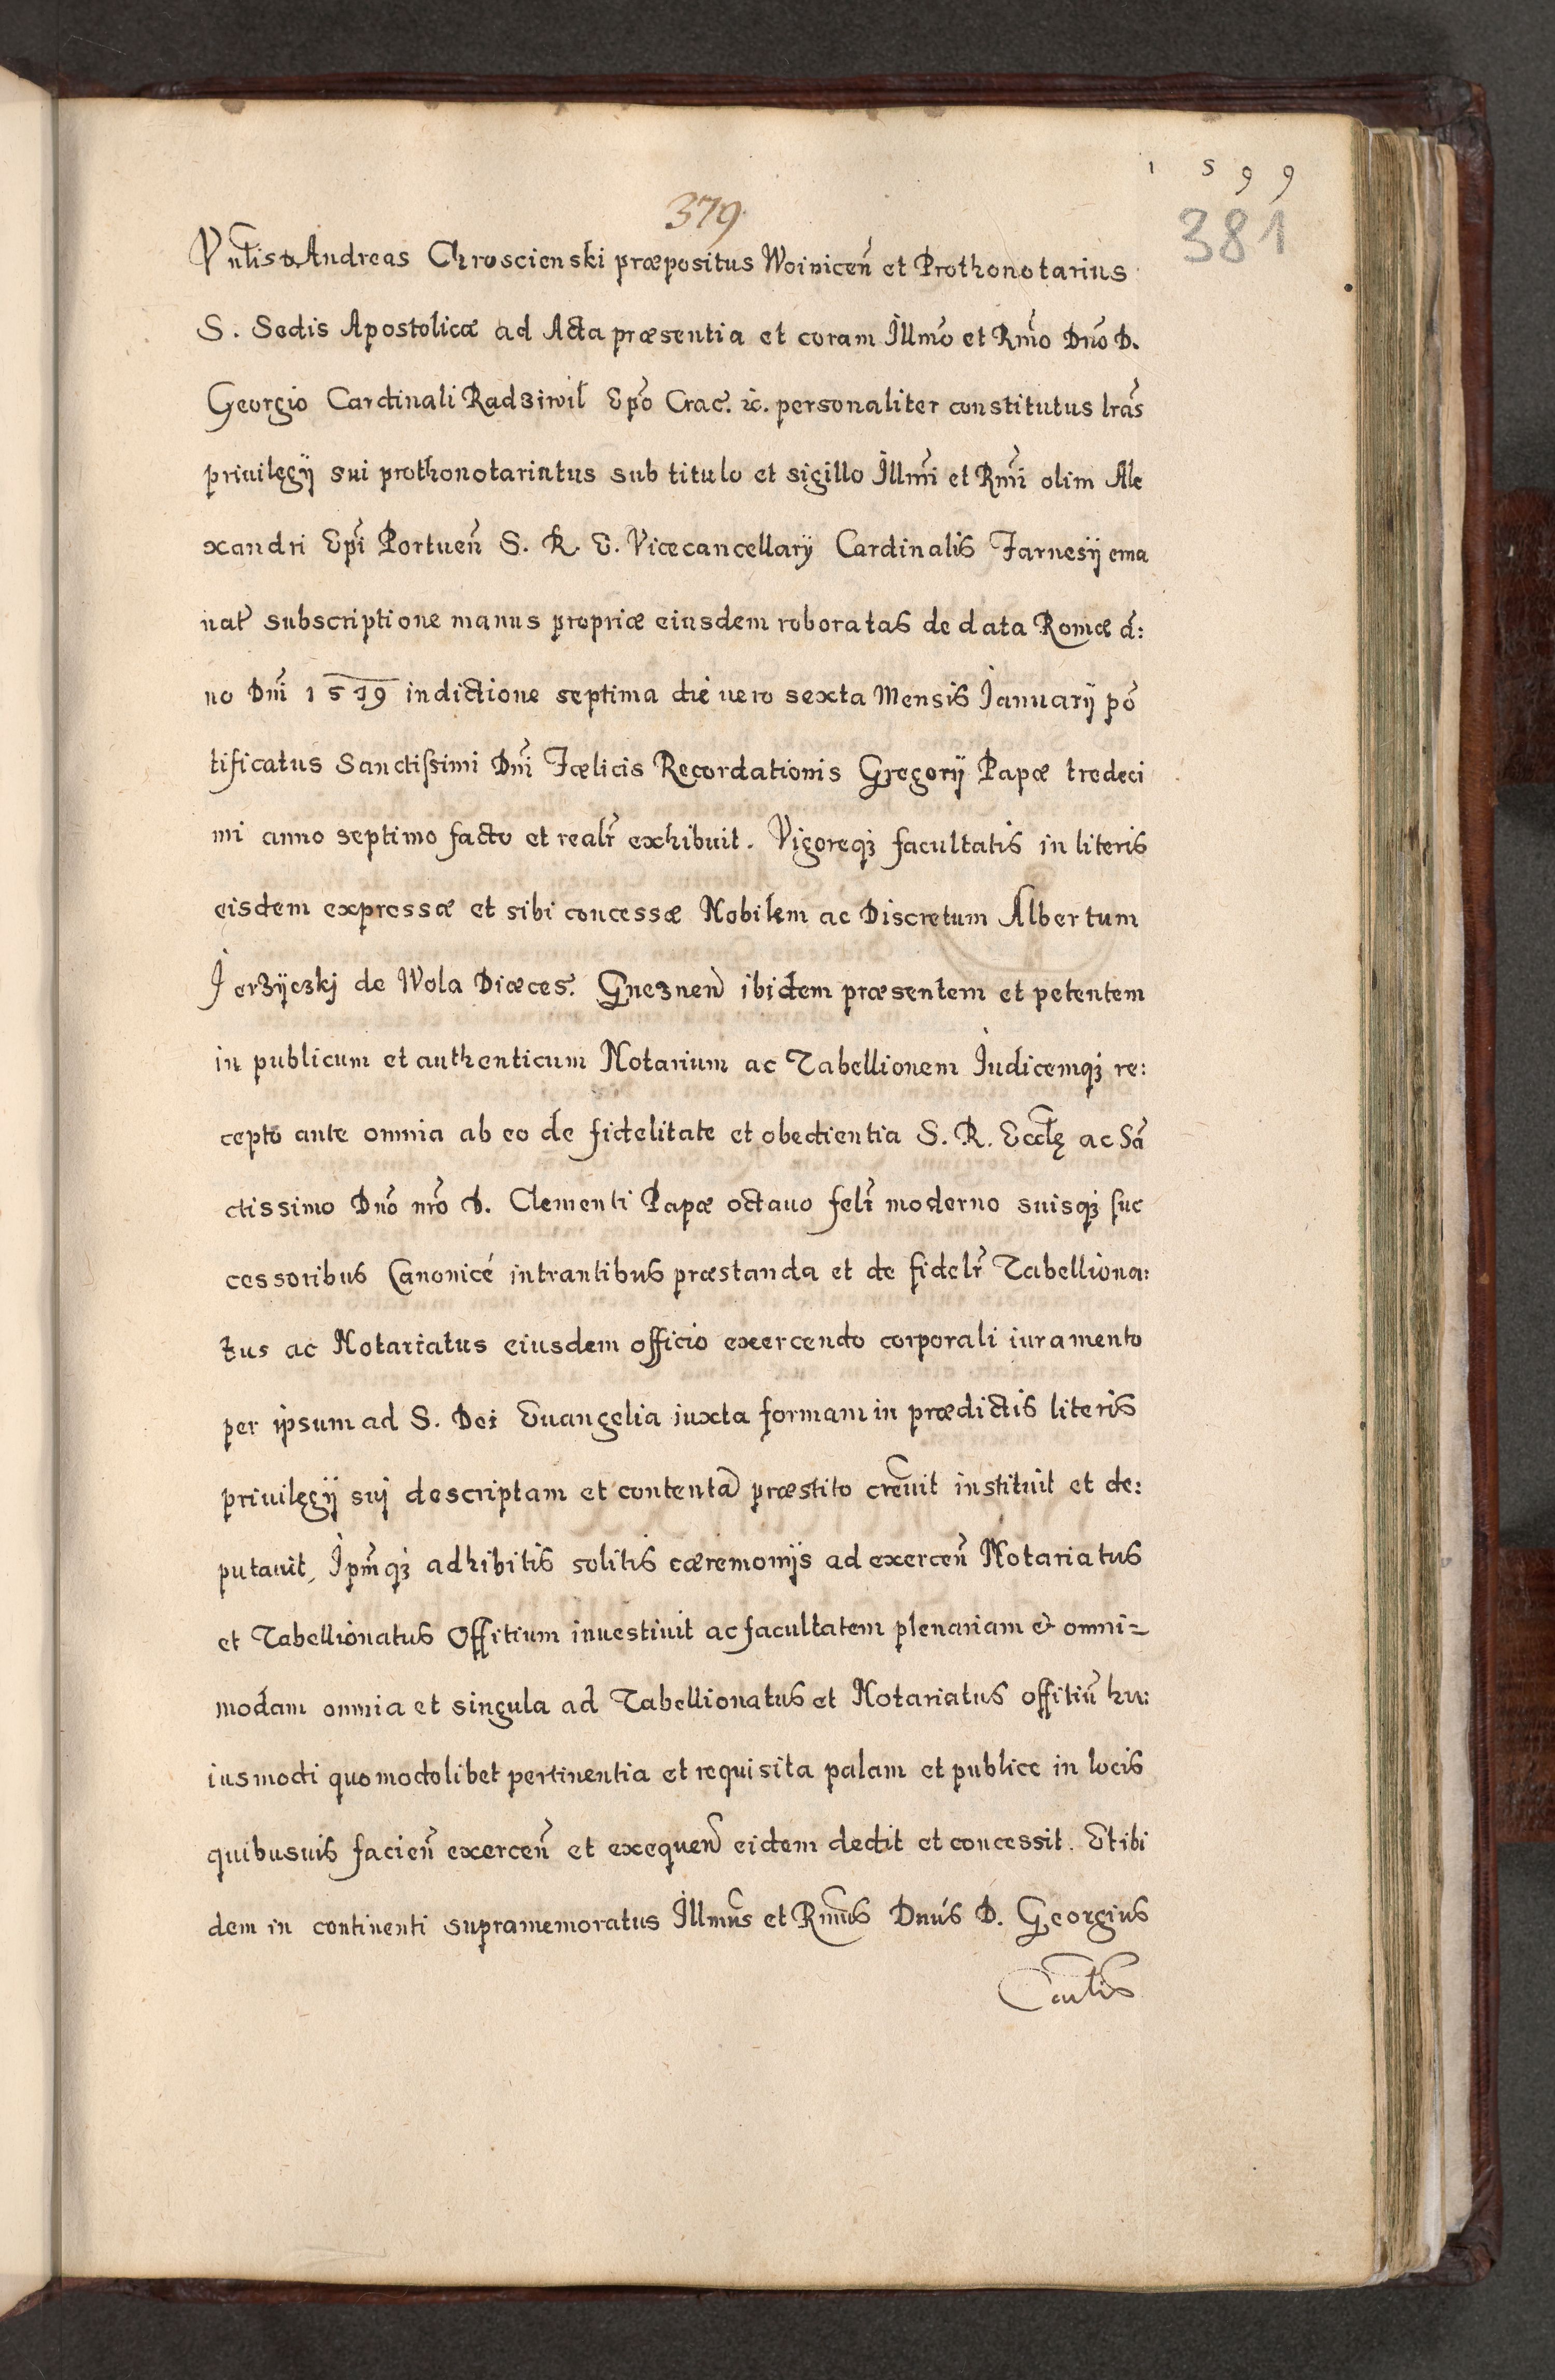 1 5 9 9
379.
381
Vnlis D. Andreas Chroscienski præpositus Woinicen̄ et Prothonotarius
S. Sedis Apostolicæ ad Acta præsentia et coram Illmo et Rmo Dno D.
Georgio Cardinali Radziwil Epo Crac. &c. personaliter constitutus lras
priuilęgij sui prothonotariatus sub titulo et sigillo Illmi et Rmi olim Ale
xandri Epi Portuen̄ S. R. E. Vicecancellarij Cardinalis Farnesij ema
nat subscriptione manus propriæ eiusdem roboratas de data Romæ a:
no Dni 1579 indictione septima die uero sexta Mensis Ianuarij pō
tificatus Sanctissimi Dni Fœlicis Recordationis Gregorij Papæ tredeci
mi anno septimo facto et realr exhibuit. Vigoreq₃ facultatis in literis
eisdem expressæ et sibi concessæ Nobilem ac Discretum Albertum
Ierzÿczkj de Wola Diœces. Gneznen̄ ibidem præsentem et petentem
in publicum et authenticum Notarium ac Tabellionem Iudicemq₃ re:
cepto ante omnia ab eo de fidelitate et obedientia S. R. Ecclę ac Sā
ctissimo Dno nro D. Clementi Papæ octauo felr moderno suisq₃ suc
cessoribus Canonicé intrantibus præstanda et de fidelr Tabelliona:
tus ac Notariatus eiusdem officio exercendo corporali iuramento
per ipsum ad S. Dei Euangelia iuxta formam in prædictis literis
priuilęgij suj descriptam et contentā præstito creuit instituit et de:
putauit, Ipmq₃ adhibitis solitis cæremonijs ad exercen̄ Notariatus
et Tabellionatus Offitium inuestiuit ac facultatem plenariam & omni=
modam omnia et singula ad Tabellionatus et Notariatus offitiū hu:
iusmodi quomodolibet pertinentia et requisita palam et publice in locis
quibusuis facien̄ exercen̄ et exequen̄ eidem dedit et concessit. Et ibi
dem in continenti supramemoratus Illmus et Rmus Dnus D. Georgius
Cardlis